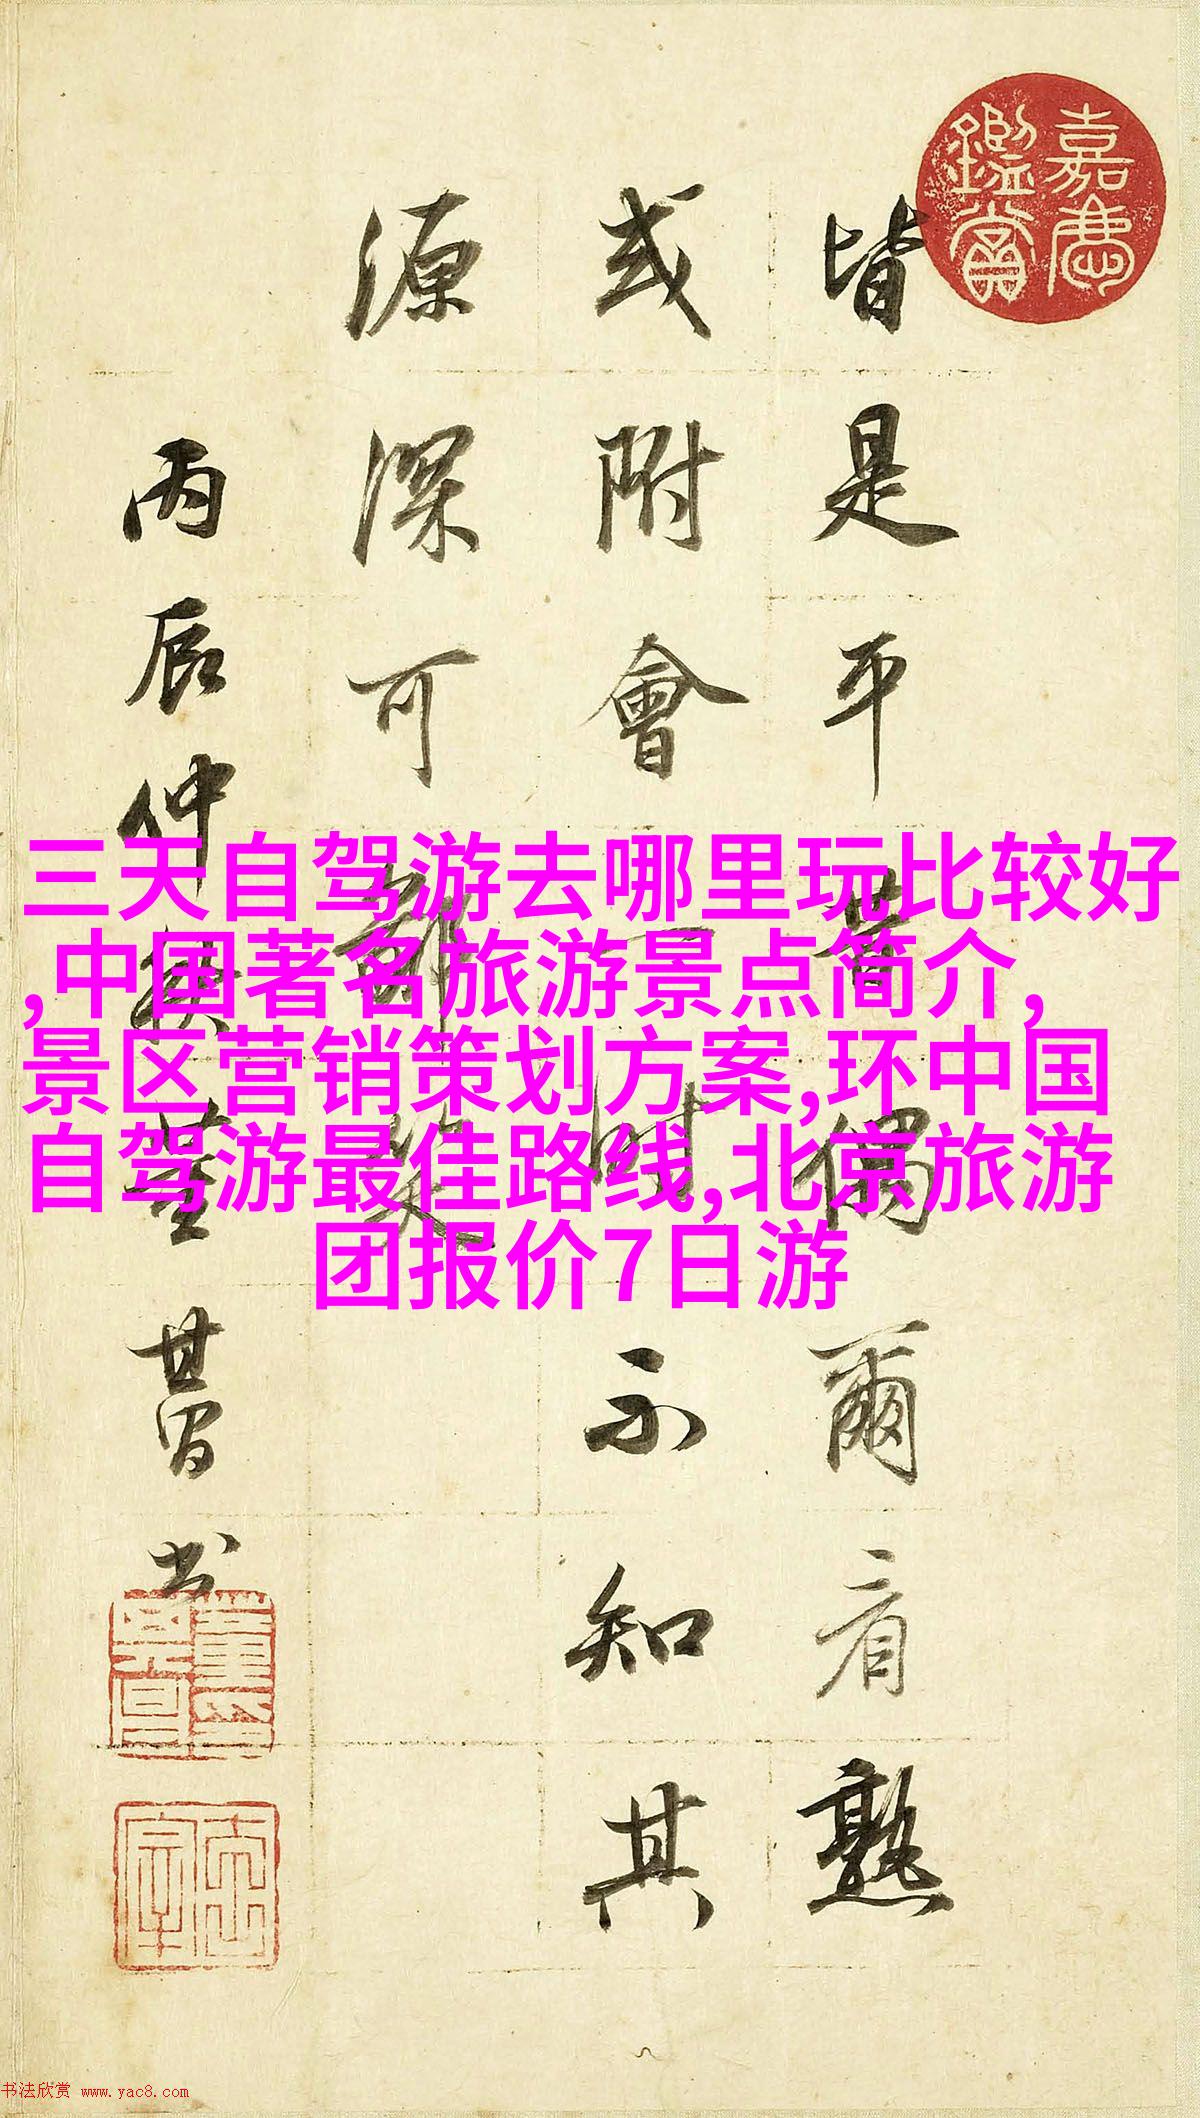 嘉慶
鑑賞
皆是平昔偶爾看熟
或附會一時不知其
源深可鄙笑
丙辰仲秋董其昌书
三天自驾游去哪里玩比较好
,中国著名旅游景点简介,
景区营销策划方案,环中国
自驾游最佳路线,北京旅游
团报价7日游
书法欣赏 www.yac8.com